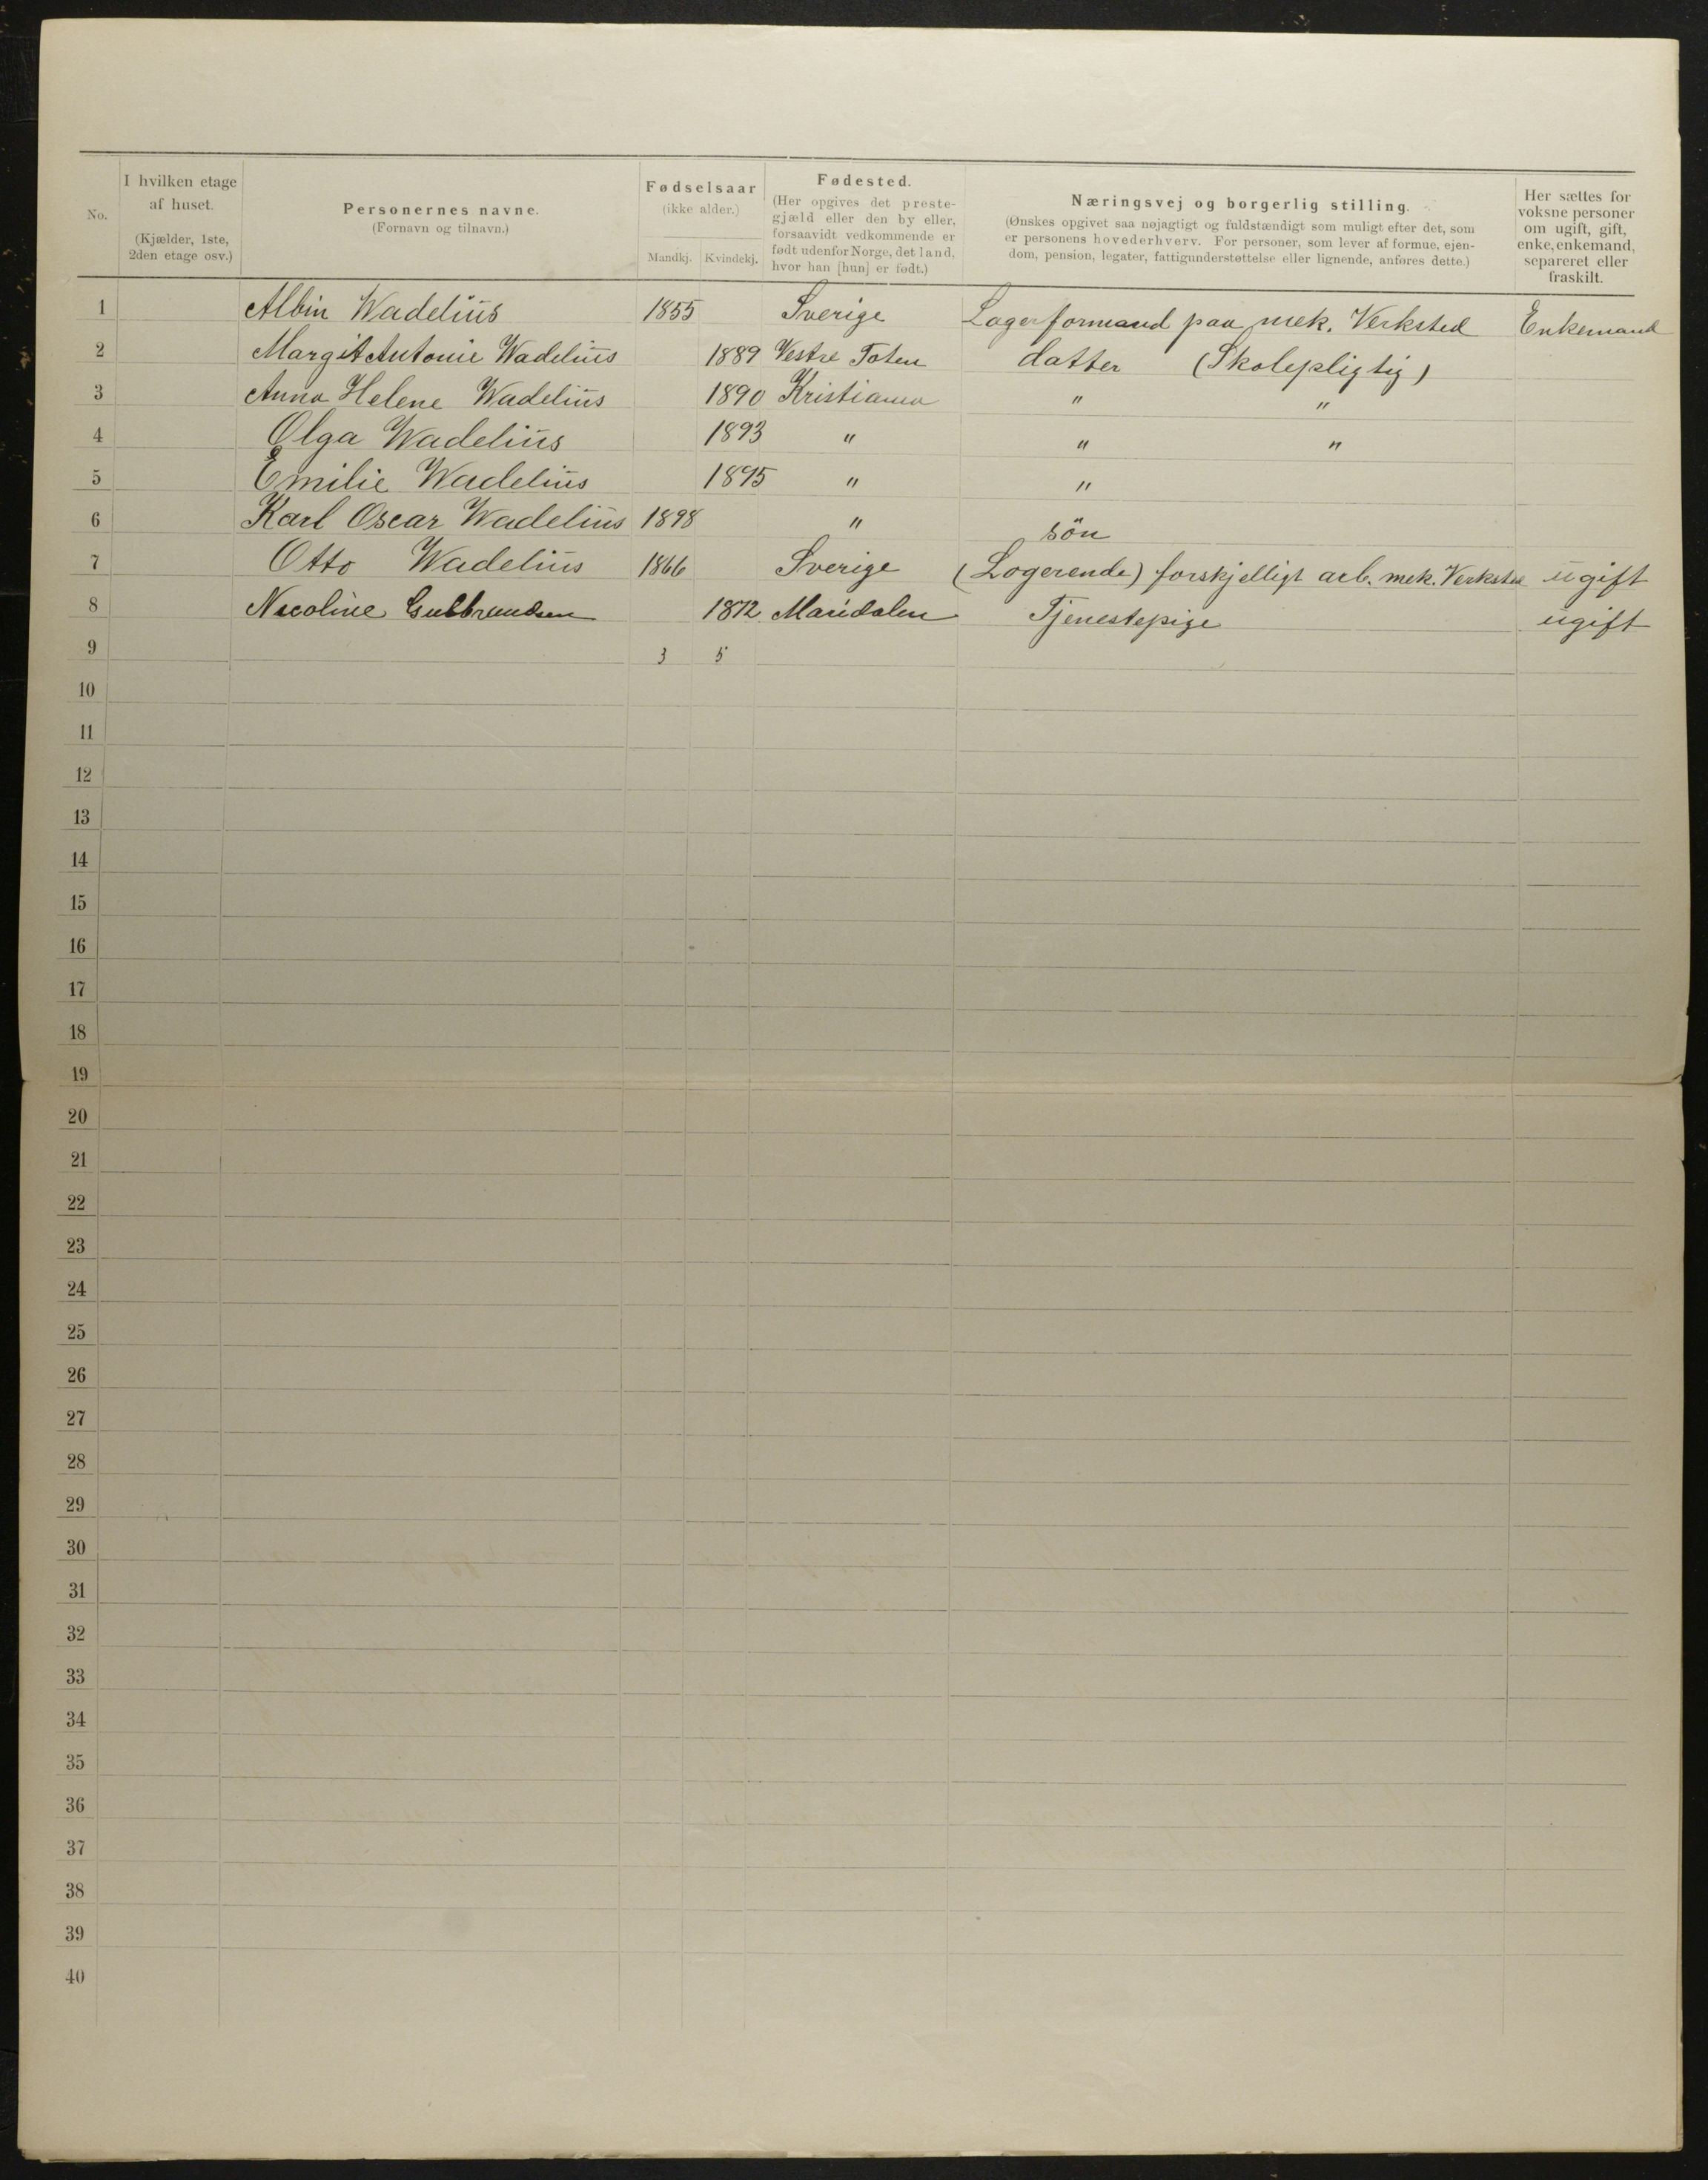 No.
I hvilken etage
af huset.
(Kjælder, 1ste,
2den etage osv.)
Personernes navne.
(Fornavn og tilnavn.)
Fødselsaar
(ikke alder.)
Mandkj. Kvindekj.
Fødested.
(Her opgives det preste-
gjæld eller den by eller,
forsaavidt vedkommende er
født udenfor Norge, det land,
hvor han [hun] er født.)
Næringsvej og borgerlig stilling.
(Ønskes opgivet saa nøjagtigt og fuldstændigt som muligt efter det, som
er personens hovederhverv. For personer, som lever af formue, ejen-
dom, pension, legater, fattigunderstøttelse eller lignende, anføres dette.)
Her sættes for
voksne personer
om ugift, gift,
enke, enkemand,
separeret eller
fraskilt.
1 Albin Wadelius 1855 Sverige Lagerformand paa mek. Verksted Enkemand
2 Margit Antonie Wadelius 1889 Vestre Toten datter (Skolepligtig)
3 Anna Helene Wadelius 1890 Kristiania " "
4 Olga Wadelius 1893 " " "
5 Emilie Wadelius 1895 " "
6 Karl Oscar Wadelius 1898 " sön
7 Otto Wadelius 1866 Sverige (Logerende) forskjelligt arb. mek. Verksted ugift
8 Nicoline Gulbrandsen 1872 Maridalen Tjenestepige ugift
9 3 5
10
11
12
13
14
15
16
17
18
19
20
21
22
23
24
25
26
27
28
29
30
31
32
33
34
35
36
37
38
39
40